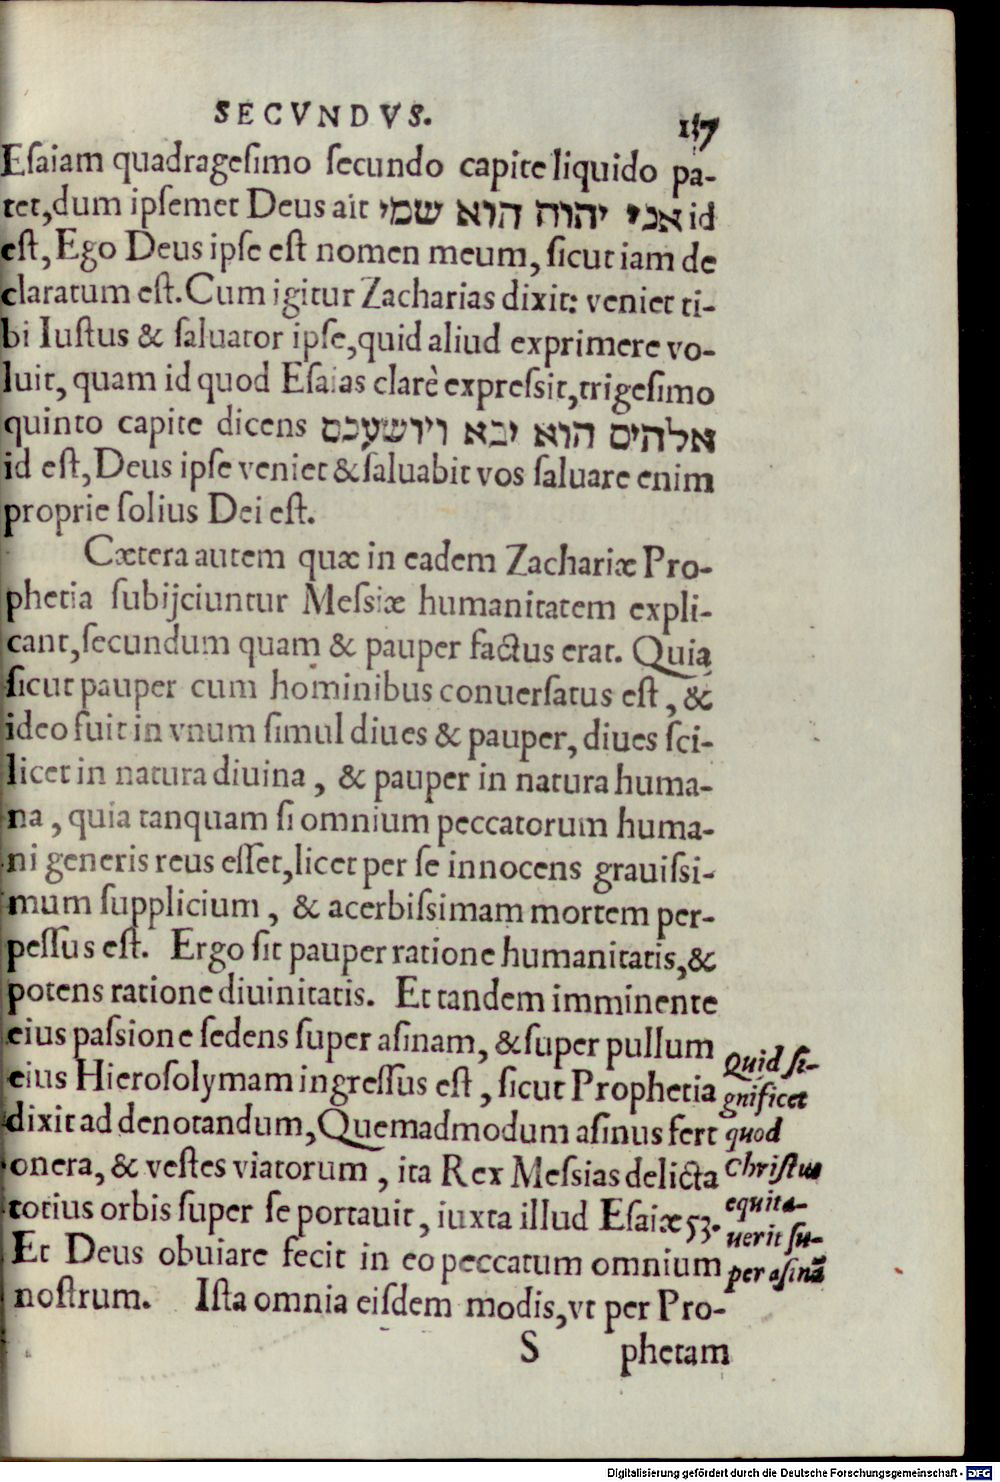 SECVNDVS.
Eſaiam quadrageſimo ſecundo capite liquido pa-
tet,dum ipſemet Deus ait אני יהוה הוא שמי id
eſt, Ego Deus ipſe eſt nomen meum, ſicut iam de
claratum eſt.Cum igitur Zacharias dixit: veniet ti-
bi Iuſtus & ſaluator ipſe,quid aliud exprimere vo-
luit, quam id quod Eſaias clarè expreſsit,trigeſimo
quinto capite dicens אלהים הוא יבא ויושעכם
id eſt, Deus ipſe veniet & ſaluabit vos ſaluare enim
proprie ſolius Dei eſt.
Cætera autem quæ in eadem Zachariæ Pro-
phetia ſubijciuntur Meſsiæ humanitatem expli-
cant,ſecundum quam & pauper factus erat. Quia
ſicut pauper cum hominibus conuerſatus eſt, &
ideo fuit in vnum ſimul diues & pauper, diues ſci-
licet in natura diuina, & pauper in natura huma-
na, quia tanquam ſi omnium peccatorum huma-
ni generis reus eſſet,licet per ſe innocens grauiſsi-
mum ſupplicium, & acerbiſsimam mortem per-
peſſus eſt. Ergo ſit pauper ratione humanitatis,&
potens ratione diuinitatis. Et tandem imminente
eius paſsione ſedens ſuper aſinam, & ſuper pullum
eius Hieroſolymam ingreſſus eſt, ſicut Prophetia
dixit ad denotandum, Quemadmodum aſinus fert
onera, & veſtes viatorum, ita Rex Meſsias delicta
totius orbis ſuper ſe portauit, iuxta illud Eſaiæ 53.
Et Deus obuiare fecit in eo peccatum omnium
noſtrum. Iſta omnia eiſdem modis,vt per Pro-
Quid ſi-
gnificet
quod
Chriſtus
equita-
uerit ſu-
per aſinā
S phetam
Digitalisierung gefördert durch die Deutsche Forschungsgemeinschaft - DFG